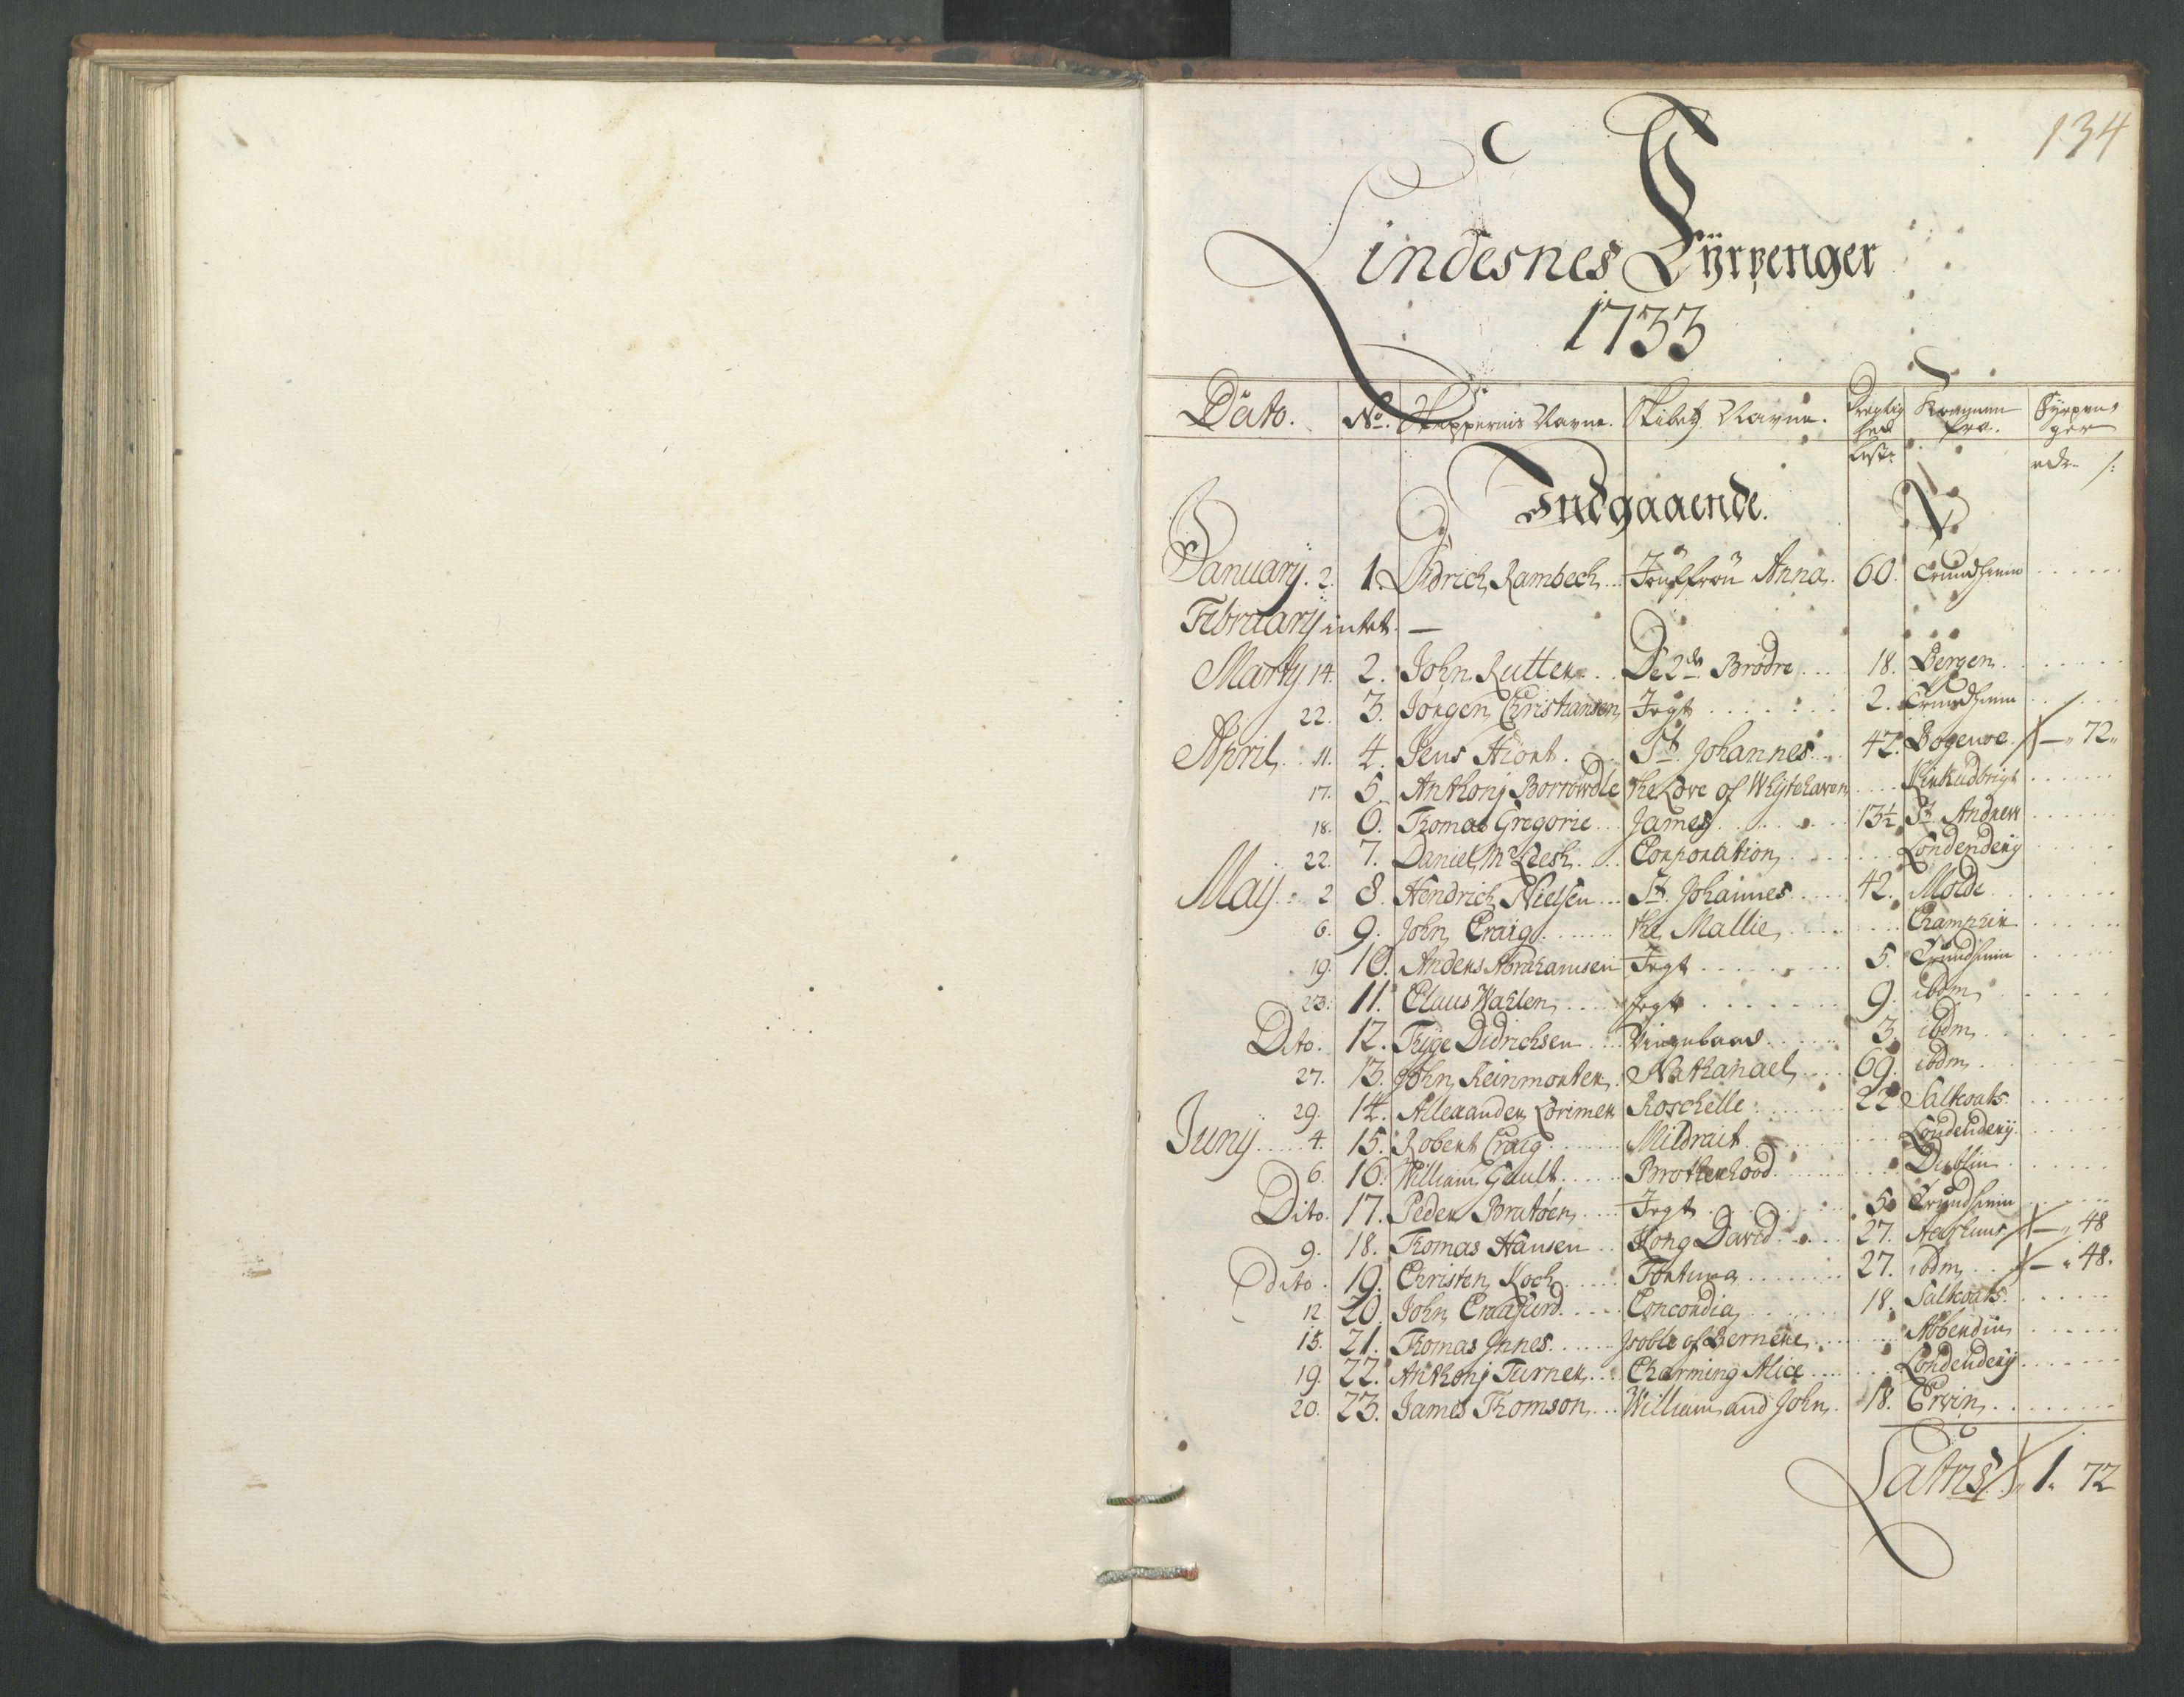 134
Lindesnes Fÿrpenger
1733
Dato. No. Skippernis Navne. Skibetz Navne. Dregtig Kommen Fÿrpen
hed fra. ger
Lest: rdr. ß:
Indgaaende.
Januarÿ. 2. 1. Didrich Rambech... Jomfrou Anna. 60. Trundhiem ......
Februarÿ intet. —
Martÿ 14. 2. John Rutter... De 2de Brødre.... 18. Bergen.......
22. 3. Jørgen Christiansen Jegt....... 2. Trundhiem ......
April. 11. 4. Jens Hiort.... St. Johannes... 42. Bogense. — „ 72„
17. 5. Anthonj Borrowdle the Love of Whÿtehaven .... Kirkudbrigt ......
18. 6. Thomas Gregorie... James....... 13½ St. Andrew ......
22. 7. Daniel Mc Leesh.... Corporation....... Londenderÿ ......
Maÿ.. 2 8. Hendrich Nielsen... St. Johannes..... 42. Molde ......
6. 9. John Craig....... the Mallie....... ......
19. 10. Anders Abrahamsen Jegt....... 5. Trundhiem ......
23. 11. Claus Wahlen.... Jegt....... 9. ibdm ......
Dito. 12. Thÿge Didrichsen.... ...... 3. ibdm ......
27. 13. John Reinmorter. Nathanael.... 69. ibdm ......
29. 14. Allexander Lorimer Roschelle....... 22 Saltkoats ......
Junÿ..... 4. 15. Robert Craig....... Mildrait....... Londenderÿ ......
6. 16. William Gault..... Brotherhood....... Dublin ......
Dito. 17. Peder Bratøen.... Jegt....... 5. Trundhiem ......
9. 18. Thomas Hansen.. Kong David..... 27. Aarhuus — „ 48
dito. 19. Christen Koch..... Fortuna....... 27. ibdm... — „ 48.
12 20. John Craufurd.... Concordia....... 18. Saltkoats ......
15. 21. Thomas Innes...... Isoble of Bernerie....... Abberdin ......
19. 22. Anthonj Turner... Charming Alice....... Londenderÿ ......
20. 23. James Thomson... William and John. 18. Ervin ......
Latris „ 1„ 72